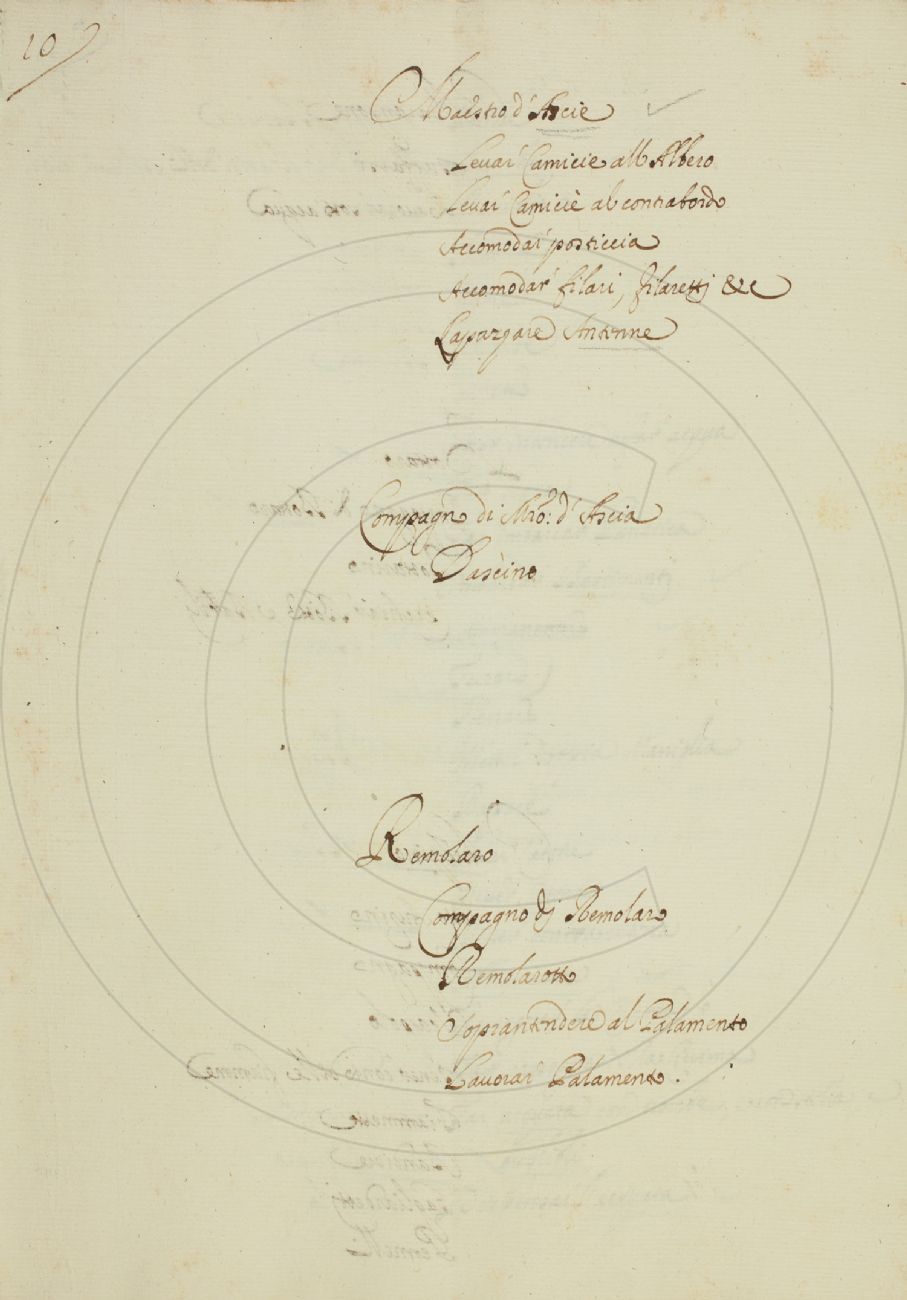 10
Maestro d'Ascie
Levar' Camicie all Albero
Levar' Camicie al contrabordo
Accomodar' posticcia
Accomodar' filari, filaretti &c
Antenne
Compagno di Mro: d'Ascia
Dascino
Remolaro
Compagno di Remolaro
Remolarotto
Soprantendere al Palamento
Lavorar' Palamento.